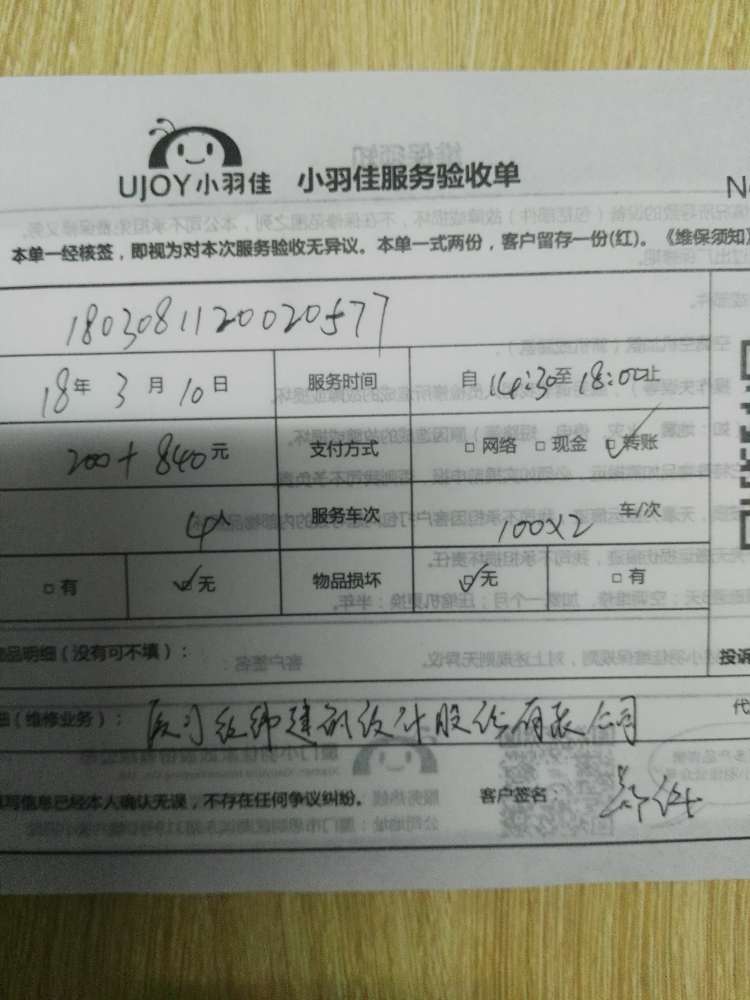 UJOY小羽佳 小羽佳服务验收单
本单一经核签，即视为对本次服务验收无异议。本单一式两份，客户留存一份(红)。《维保须知》
1803081120020577
18年 3月 10日 服务时间 自 14:30至 18:00止
200+840元 支付方式 □ 网络 □ 现金 ☑ 转账
4人 服务车次 100×2 车/次
□ 有 ☑ 无 物品损坏 ☑ 无 □ 有
品明细（没有可不填）： 投诉
（维修业务）： 厦门经纬建筑设计股份有限公司 代
写信息已经本人确认无误，不存在任何争议纠纷。 客户签名：